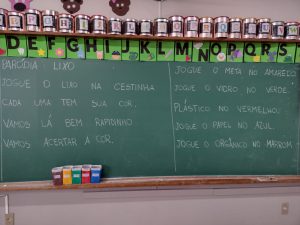 D E F G H I J K L M N O P Q R S T
PARÓDIA LIXO
JOGUE O LIXO NA CESTINHA
CADA UMA TEM SUA COR.
VAMOS LÁ BEM RAPIDINHO
VAMOS ACERTAR A COR.
JOGUE O META NO AMARELO
JOGUE O VIDRO NO VERDE.
PLÁSTICO NO VERMELHO.
JOGUE O PAPEL NO AZUL.
JOGUE O ORGÂNICO NO MARROM